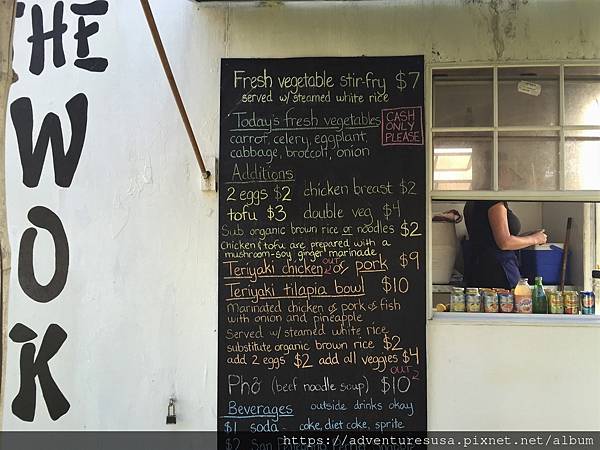 THE
WOK
Fresh vegetable stir-fry $7
served w/steamed white rice
Today's fresh vegetables
carrot, celery, eggplant,
cabbage, broccoli, onion
CASH
ONLY
PLEASE
Additions
2 eggs $2 chicken breast $2
tofu $3 double veg $4
Sub organic brown rice or noodles $2
Chicken & tofu are prepared with a
mushroom-soy, ginger marinade
Teriyaki chicken or pork $9
OUT
Teriyaki tilapia bowl $10
Marinated chicken or pork or fish
with onion and pineapple
Served w/ steamed white rice
substitute organic brown rice $2
add 2 eggs $2 add all veggies $4
OUT
Phở (beef noodle soup) $10
Beverages outside drinks okay
$1 soda - coke, diet coke, sprite
$2 San
https://adventuresusa.pixnet.net/album